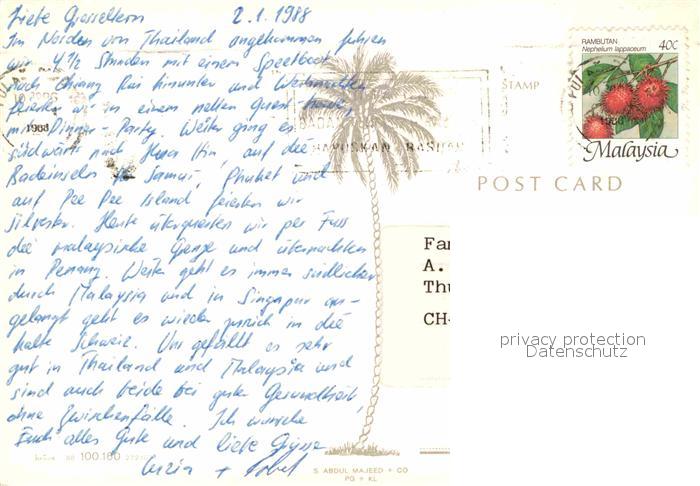 Liebe Grosseltern 2.1.1988
Im Norden von Thailand angekommen fuhren
wir 4 1/2 Stunden mit einem Speetboot
nach Chiang Rai hinunter und Weihnachten
feierten wir in einem netten Guest-house,
mit Dinner-Party. Weiter ging es
südwärts nach Hua Hin, auf die
Badeinseln Ko Samui, Phuket und
auf Pee Pee Island feierten wir
Silvester. Heute überquerten wir per Fuss
die malaysische Grenze und übernachten
in Penang. Weiter geht es immer südlicher
durch Malaysia und in Singapur an-
gelangt geht es wieder zurück in die
kalte Schweiz. Uns gefällt es sehr
gut in Thailand und Malaysia und
sind auch beide bei guter Gesundheit,
ohne Zwischenfälle. Ich wünsche
Euch alles Gute und liebe Grüsse
1988
STAMP
RAMBUTAN 40¢
Nephelium lappaceum
1988
Malaysia
POST CARD
Fam
A.
Thu
CH-
privacy protection
Datenschutz
100.180
S. ABDUL MAJEED + CO
PG + KL